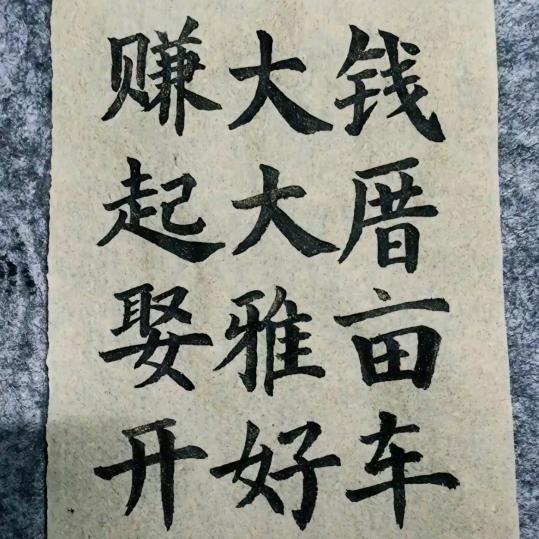 赚大钱
起大厝
娶雅亩
开好车